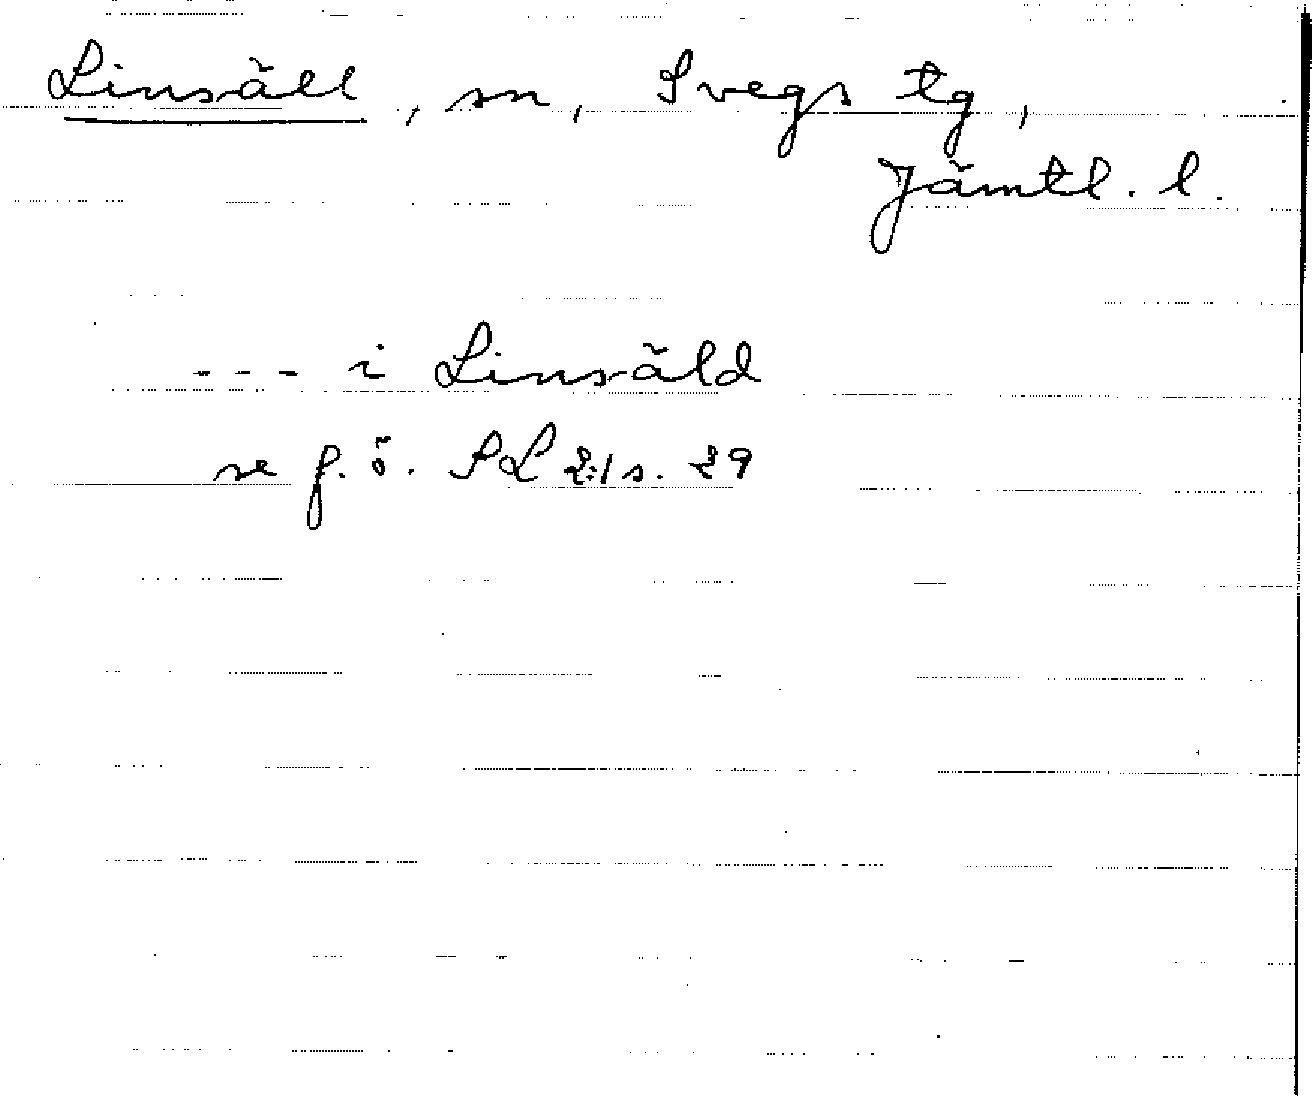 Linsäll, sn, Svegs tg,
Jämtl. l.
--- i Linsäld
se f. ö. SL 2:1 s. 29